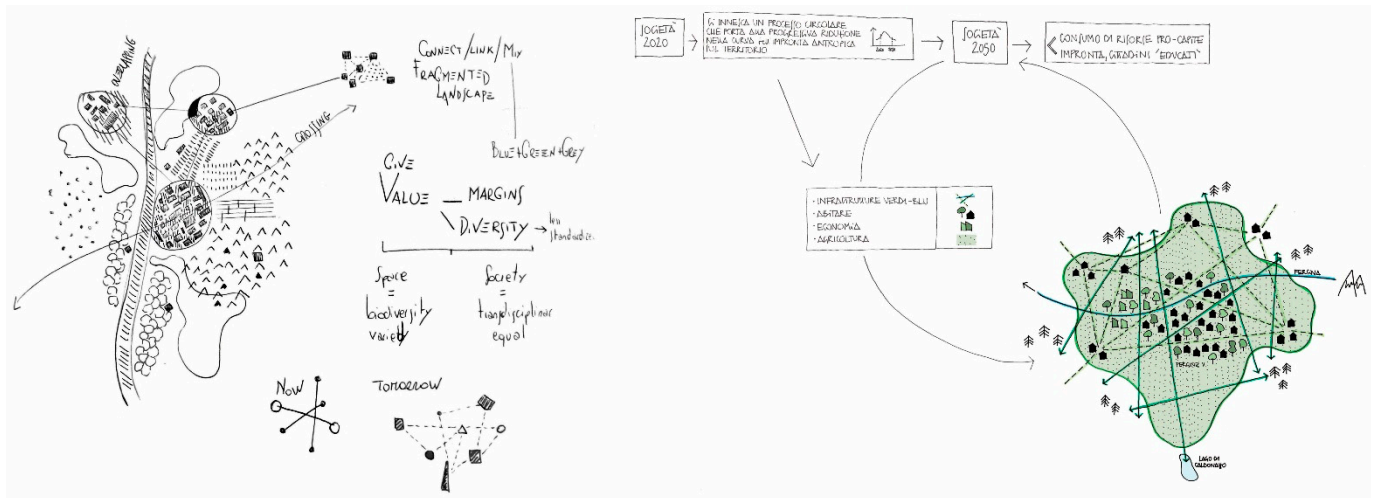 OVERLAPPING
CONNECT/LINK/MIX
FRAGMENTED
LANDSCAPE
CROSSING
BLUE+GREEN+GREY
GIVE
VALUE
MARGINS
DIVERSITY
less
Space
=
biodiversity
variety
Society
=
transdisciplinar
equal
NOW
TOMORROW
SOCIETÀ
2020
SI INNESCA UN PROCESSO CIRCOLARE
CHE PORTA ALLA PROGRESSIVA RIDUZIONE
NELLA CURVA DELL'IMPRONTA ANTROPICA
SUL TERRITORIO
SOCIETÀ
2050
< CONSUMO DI RISORSE PRO-CAPITE
IMPRONTA, CITTADINI "EDUCATI"
· INFRASTRUTTURE VERDI-BLU
· ABITARE
· ECONOMIA
· AGRICOLTURA
FERSINA
PERGINE V.
LAGO DI
CALDONAZZO